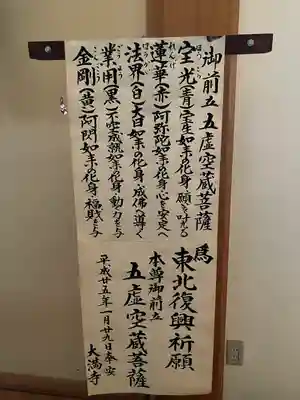 御前立 五虚空蔵菩薩
ほうこう
宝光(青)宝生如来の化身・願を叶える
れんげ
蓮華(赤)阿弥陀如来の化身・心を安定へ
ほうかい
法界(白)大日如来の化身・成佛へ導く
ごうよう
業用(黒)不空成就如来の化身・動力を与
こんごう
金剛(黄)阿閃如来の化身・福財を与
為 東北復興祈願
本尊御前立
五虚空蔵菩薩
平成廿五年一月廿九日奉安
大満寺